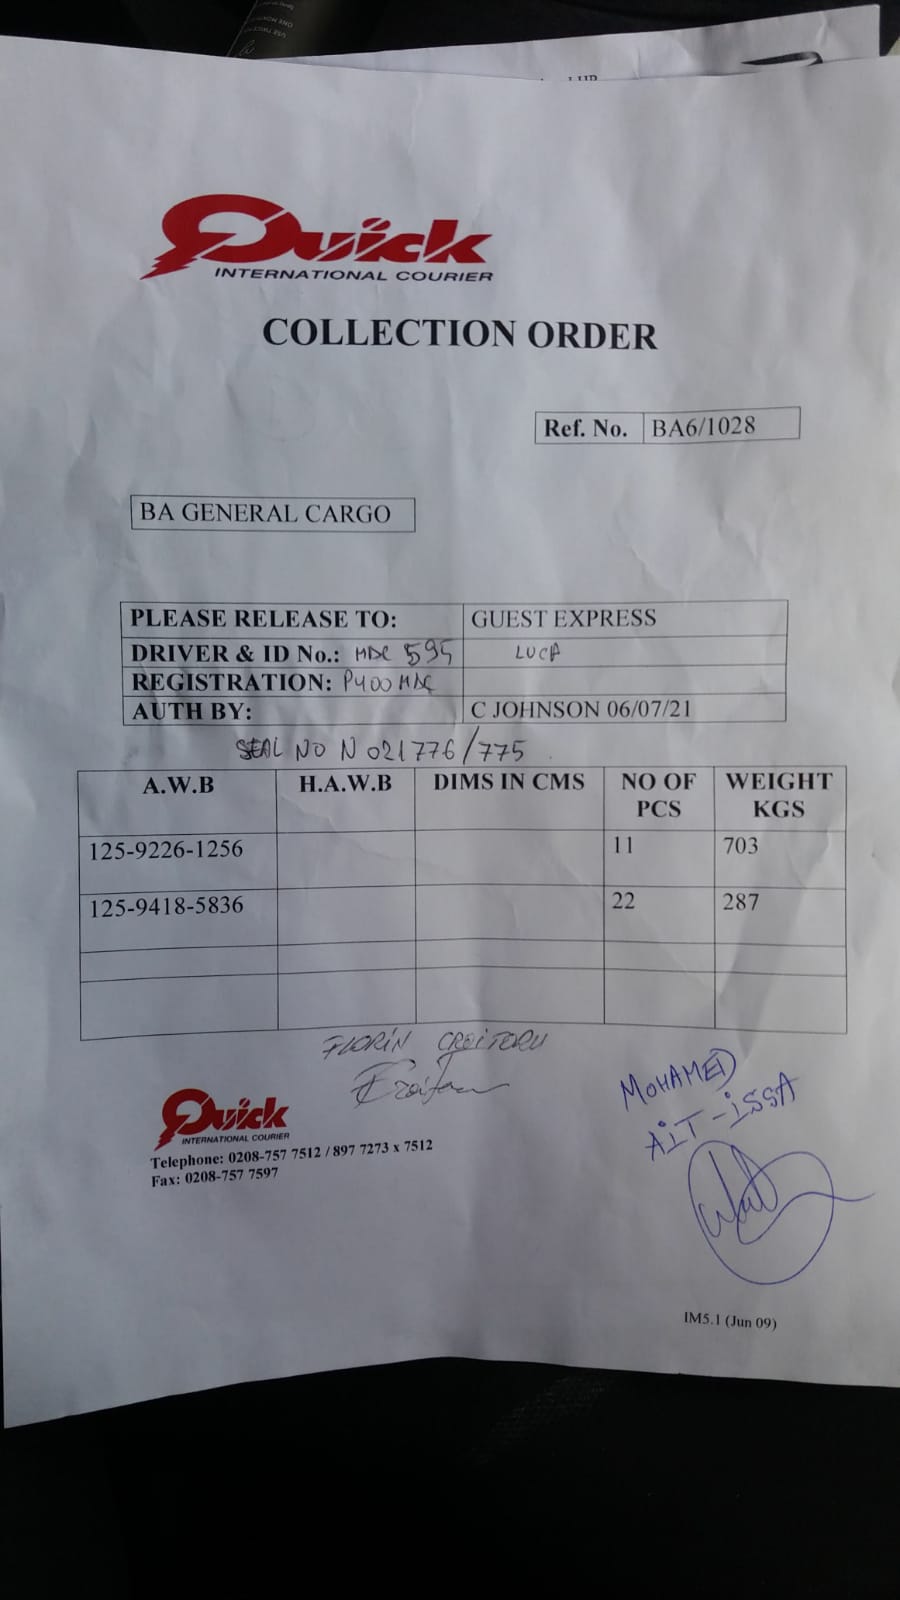 Quick
INTERNATIONAL COURIER
COLLECTION ORDER
Ref. No. BA6/1028
BA GENERAL CARGO
PLEASE RELEASE TO: GUEST EXPRESS
DRIVER & ID No.: MDC 595 LUCA
REGISTRATION: P400 MDC
AUTH BY: C JOHNSON 06/07/21
SEAL NO N 021776/775
A.W.B H.A.W.B DIMS IN CMS NO OF PCS WEIGHT KGS
125-9226-1256 11 703
125-9418-5836 22 287
FLORIN CROITORU
MOHAMED
AIT-ISSA
Quick
INTERNATIONAL COURIER
Telephone: 0208-757 7512 / 897 7273 x 7512
Fax: 0208-757 7597
IM5.1 (Jun 09)